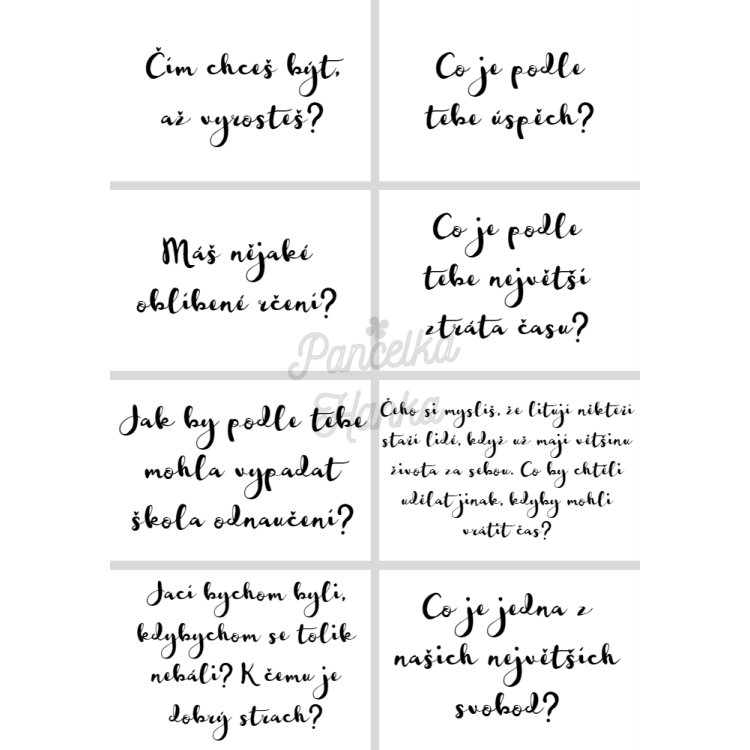 Čím chceš být,
až vyrosteš?
Co je podle
tebe úspěch?
Máš nějaké
oblíbené rčení?
Co je podle
tebe největší
ztráta času?
Pancelka
Hanka
Jak by podle tebe
mohla vypadat
škola odnaučení?
Čeho si myslíš, že litují někteří
staří lidé, když už mají většinu
života za sebou. Co by chtěli
udělat jinak, kdyby mohli
vrátit čas?
Jací bychom byli,
kdybychom se tolik
nebáli? K čemu je
dobrý strach?
Co je jedna z
našich největších
svobod?